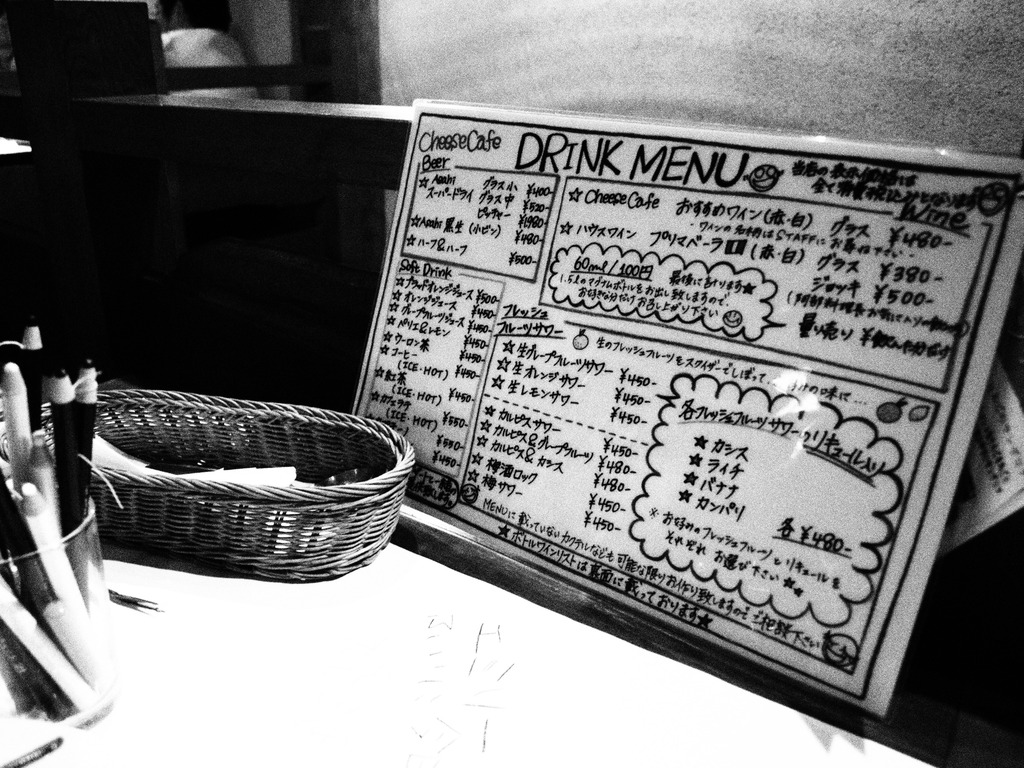 CheeseCafe
DRINK MENU
Beer
☆ Asahi グラス小 ¥400-
スーパードライ グラス中 ¥520-
ピッチャー ¥1980-
☆Asahi 黒生 (小ビン) ¥480-
☆ ハーフ&ハーフ ¥500-
Soft Drink
☆ブラッドオレンジジュース ¥500-
☆オレンジジュース ¥450-
☆グレープフルーツジュース ¥450-
☆ペリエ&レモン ¥450-
☆ウーロン茶 ¥450-
☆コーヒー
(ICE・HOT) ¥450-
☆紅茶
(ICE・HOT) ¥450-
☆カフェラテ
(ICE・HOT) ¥550-
¥550-
¥450-
当店の表示価格は
全て消費税込となります
Wine
☆ CheeseCafe おすすめワイン(赤・白) グラス ¥480-
・ワインの名柄はSTAFFにお尋ね下さい・
☆ ハウスワイン プリマベーラ (赤・白) グラス ¥380-
ジョッキ ¥500-
量り売り ¥飲んだ分だけ
60ml/100円 最後に計ります☆
1.5Lのマグナムボトルをお出し致しますので、
お好きな分だけお召し上がり下さい
フレッシュ
フルーツサワー
生のフレッシュフルーツをスクイザーでしぼって、
☆生グレープフルーツサワー ¥450-
☆生オレンジサワー ¥450-
☆生レモンサワー ¥450-
☆カルピスサワー ¥450-
☆カルピス&グレープフルーツ ¥480-
☆カルピス&カシス ¥480-
☆梅酒ロック ¥450-
☆梅サワー ¥450-
各フレッシュフルーツサワーのリキュール入り
★ カシス
★ ライチ
★ バナナ
★ カンパリ
各¥480-
※お好みのフレッシュフルーツとリキュールを
それぞれ お選び下さい★
MENUに載っていないカクテルなども可能な限りお作り致しますのでご相談下さい
★ボトルワインリストは裏面に載っております★